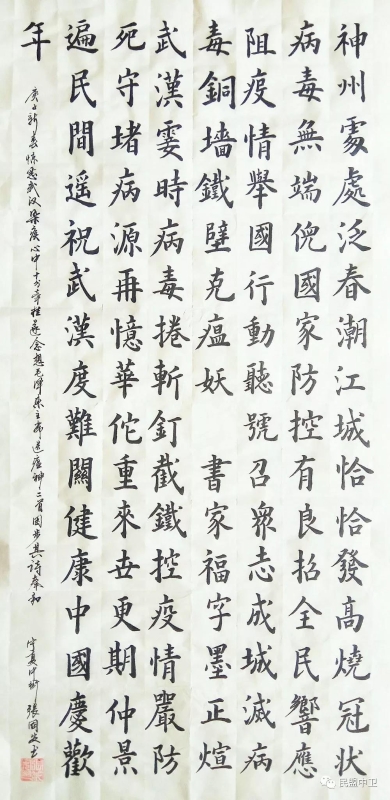 神州處處泛春潮江城恰恰發高燒冠狀
病毒無端國家防控有良招全民響應
阻疫情舉國行動聽號召眾志成城滅病
毒銅墙鐵壁克瘟妖 書家福字墨正煊
武漢霎時病毒捲斬釘截鐵控疫情嚴防
死守堵病源再憶華佗重來世更期仲景
遍民間遥祝武漢度難關健康中國慶歡
年
庚子新春惊悉武汉染疾心中十分牵挂遂念想毛澤东主席送瘟神二首因步其诗奉和
宁夏中衛 張国书
民盟中卫